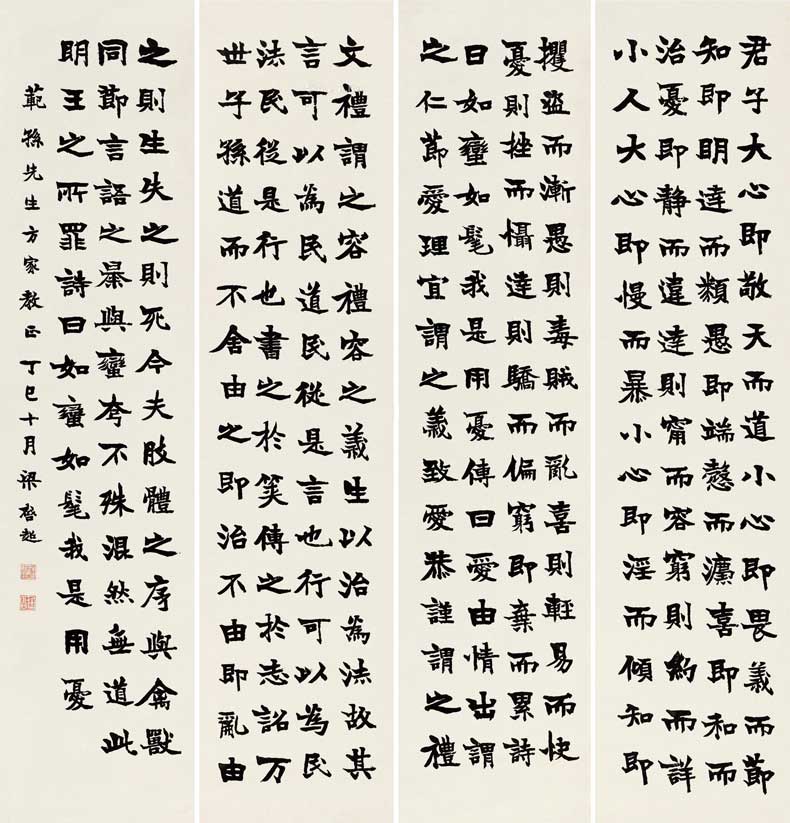 君子大心即敬天而道小心即畏義而節
知即明達而類愚即端愨而灋喜即和而
治憂即靜而違達則甯而容窮則約而詳
小人大心即慢而暴小心即淫而傾知即
攫盜而漸愚則毒賊而亂喜則輕易而快
憂則挫而懾達則驕而偏窮即棄而累詩
曰如蠻如髦我是用憂傳曰愛由情出謂
之仁節愛理宜謂之義致愛恭謹謂之禮
文禮謂之容禮容之義生以治為法故其
言可以為民道民從是言也行可以為民
法民從是行也書之於筴傳之於志詔万
世子孫道而不舍由之即治不由即亂由
之則生失之則死今夫肢體之序與禽獸
同節言語之暴與蠻夸不殊混然無道此
明王之所罪詩曰如蠻如髦我是用憂
範孫先生方家教正丁巳十月梁啓超